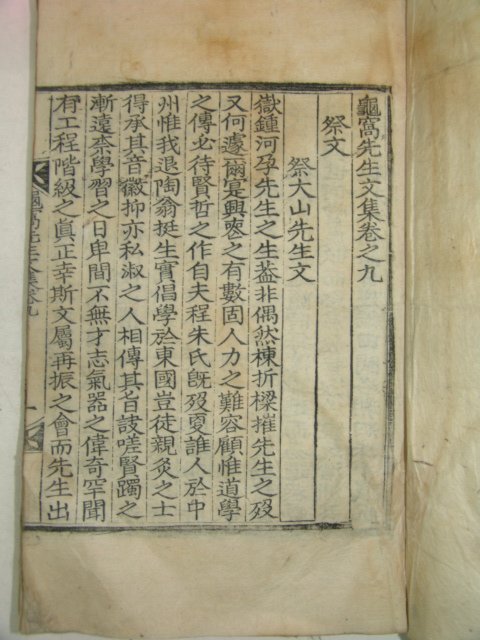 龜窩先生文集卷之九
祭文
祭大山先生文
嶽鍾河孕先生之生葢非偶然棟折樑摧先生之歿
又何遽爾寔興喪之有數固人力之難容顧惟道學
之傳必待賢哲之作自夫程朱氏旣歿夏誰人於中
州惟我退陶翁挺生實倡學於東國豈徒親灸之士
得承其音徽抑亦私淑之人相傳其旨訣嗟賢躅之
漸遠柰學習之日卑間不無才志氣器之偉奇罕聞
有工程階級之眞正幸斯文屬再振之會而先生出
龜窩先生文集卷九
一